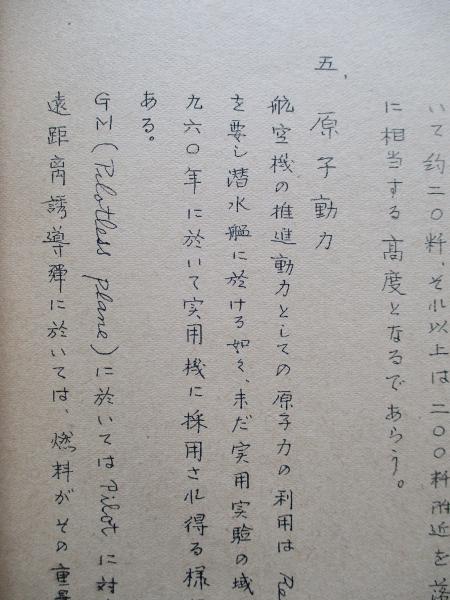 いて約二〇粁、それ以上は二〇〇粁附近を落
に相当する高度となるであらう。
五、原子動力
航空機の推進動力としての原子力の利用は Re
を要し潜水艦に於ける如く、未だ実用実験の域
九六〇年に於いて実用機に採用され得る様
ある。
GM (Pilotless plane) に於いては Pilot に対
遠距离誘導弾に於いては、燃料がその重量